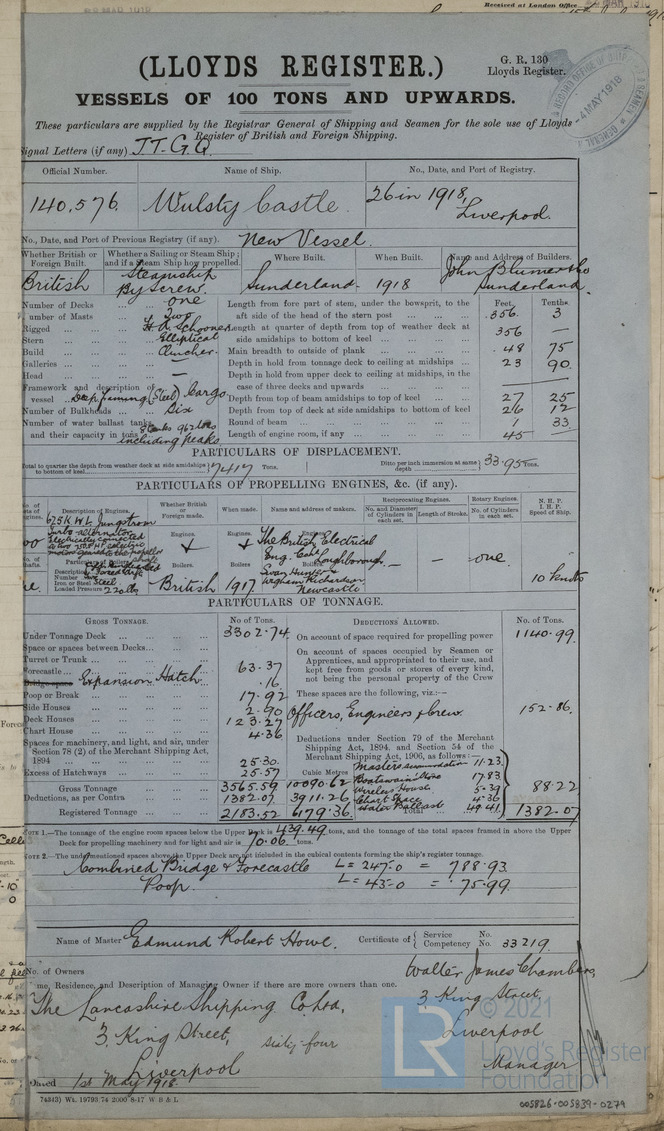 Received at London Office
(LLOYDS REGISTER.)
G. R. 130
Lloyds Register.
VESSELS OF 100 TONS AND UPWARDS.
4 MAY 1918
These particulars are supplied by the Registrar General of Shipping and Seamen for the sole use of Lloyds
Register of British and Foreign Shipping.
Signal Letters (if any) J.T.G.Q.
Official Number. Name of Ship. No., Date, and Port of Registry.
140,576. Wulsty Castle. 26 in 1918, Liverpool.
No., Date, and Port of Previous Registry (if any). New Vessel.
Whether British or Foreign Built. Whether a Sailing or Steam Ship; and if a Steam Ship how propelled. Where Built. When Built. Name and Address of Builders.
British Steamship By Screw. Sunderland. 1918 John Blumer & Co Sunderland.
Number of Decks one
Number of Masts Two
Rigged F. & A. Schooner
Stern Elliptical
Build Clincher
Galleries —
Head —
Framework and description of vessel Deep framing (Steel) Cargo
Number of Bulkheads Six
Number of water ballast tanks, and their capacity in tons 8 tanks 962 tons including peaks
Feet. Tenths.
Length from fore part of stem, under the bowsprit, to the aft side of the head of the stern post 356. 3
Length at quarter of depth from top of weather deck at side amidships to bottom of keel 356 —
Main breadth to outside of plank 48 75
Depth in hold from tonnage deck to ceiling at midships 23 90.
Depth in hold from upper deck to ceiling at midships, in the case of three decks and upwards —
Depth from top of beam amidships to top of keel 27 25
Depth from top of deck at side amidships to bottom of keel 26 12
Round of beam 1 33
Length of engine room, if any 45 —
PARTICULARS OF DISPLACEMENT.
Total to quarter the depth from weather deck at side amidships to bottom of keel 7417 Tons. Ditto per inch immersion at same depth 33.95 Tons.
PARTICULARS OF PROPELLING ENGINES, &c. (if any).
Description of Engines. Whether British or Foreign made. When made. Name and address of makers. Reciprocating Engines. No. and Diameter of Cylinders in each set. Length of Stroke. Rotary Engines. No. of Cylinders in each set. N. H. P. I. H. P. Speed of Ship.
Engines. Engines. Engines.
The British Electrical Eng. Co Ltd Loughborough
Boilers. Boilers Boilers
British 1917. Swan Hunter Wigham Richardson Newcastle
— — one. 10 knots
PARTICULARS OF TONNAGE.
GROSS TONNAGE. No of Tons. DEDUCTIONS ALLOWED. No. of Tons.
Under Tonnage Deck 3302.74
Space or spaces between Decks
Turret or Trunk
Forecastle 63.37
Expansion Hatch .16
Poop or Break 17.92
Side Houses 2.90
Deck Houses 123.27
Chart House 4.36
Spaces for machinery, and light, and air, under Section 78 (2) of the Merchant Shipping Act, 1894 25.30
Excess of Hatchways 25.57
Cubic Metres
Gross Tonnage 3565.59 10090.62
Deductions, as per Contra 1382.07 3911.26
Registered Tonnage 2183.52 6179.36
On account of space required for propelling power 1140.99.
On account of spaces occupied by Seamen or Apprentices, and appropriated to their use, and kept free from goods or stores of every kind, not being the personal property of the Crew
These spaces are the following, viz.:—
Officers, Engineers & crew. 152.86.
Deductions under Section 79 of the Merchant Shipping Act, 1894, and Section 54 of the Merchant Shipping Act, 1906, as follows:—
Masters accommodation 11.23
Boatswains Store 17.83
Wireless House 5.39
Chart Space 4.36
Water Ballast 49.41
88.22
Total 1382.07
NOTE 1.—The tonnage of the engine room spaces below the Upper Deck is 439.49 tons, and the tonnage of the total spaces framed in above the Upper
Deck for propelling machinery and for light and air is 70.06 tons.
NOTE 2.—The undermentioned spaces above the Upper Deck are not included in the cubical contents forming the ship's register tonnage.
Combined Bridge & Forecastle L = 247.0 = 788.93
Poop. L = 43.0 = 75.99.
Name of Master Edmund Robert Howe. Certificate of Service No. Competency No. 33219.
No. of Owners
Name, Residence, and Description of Managing Owner if there are more owners than one.
Walter James Chambers,
3 King Street,
Liverpool
Manager
The Lancashire Shipping Co Ltd,
3. King Street, sixty four
Liverpool
Dated 1st May 1918.
74343) Wt. 19793/74 2000 8-17 W B & L
© 2021
LR
Lloyd's Register
Foundation
005826-005839-0279